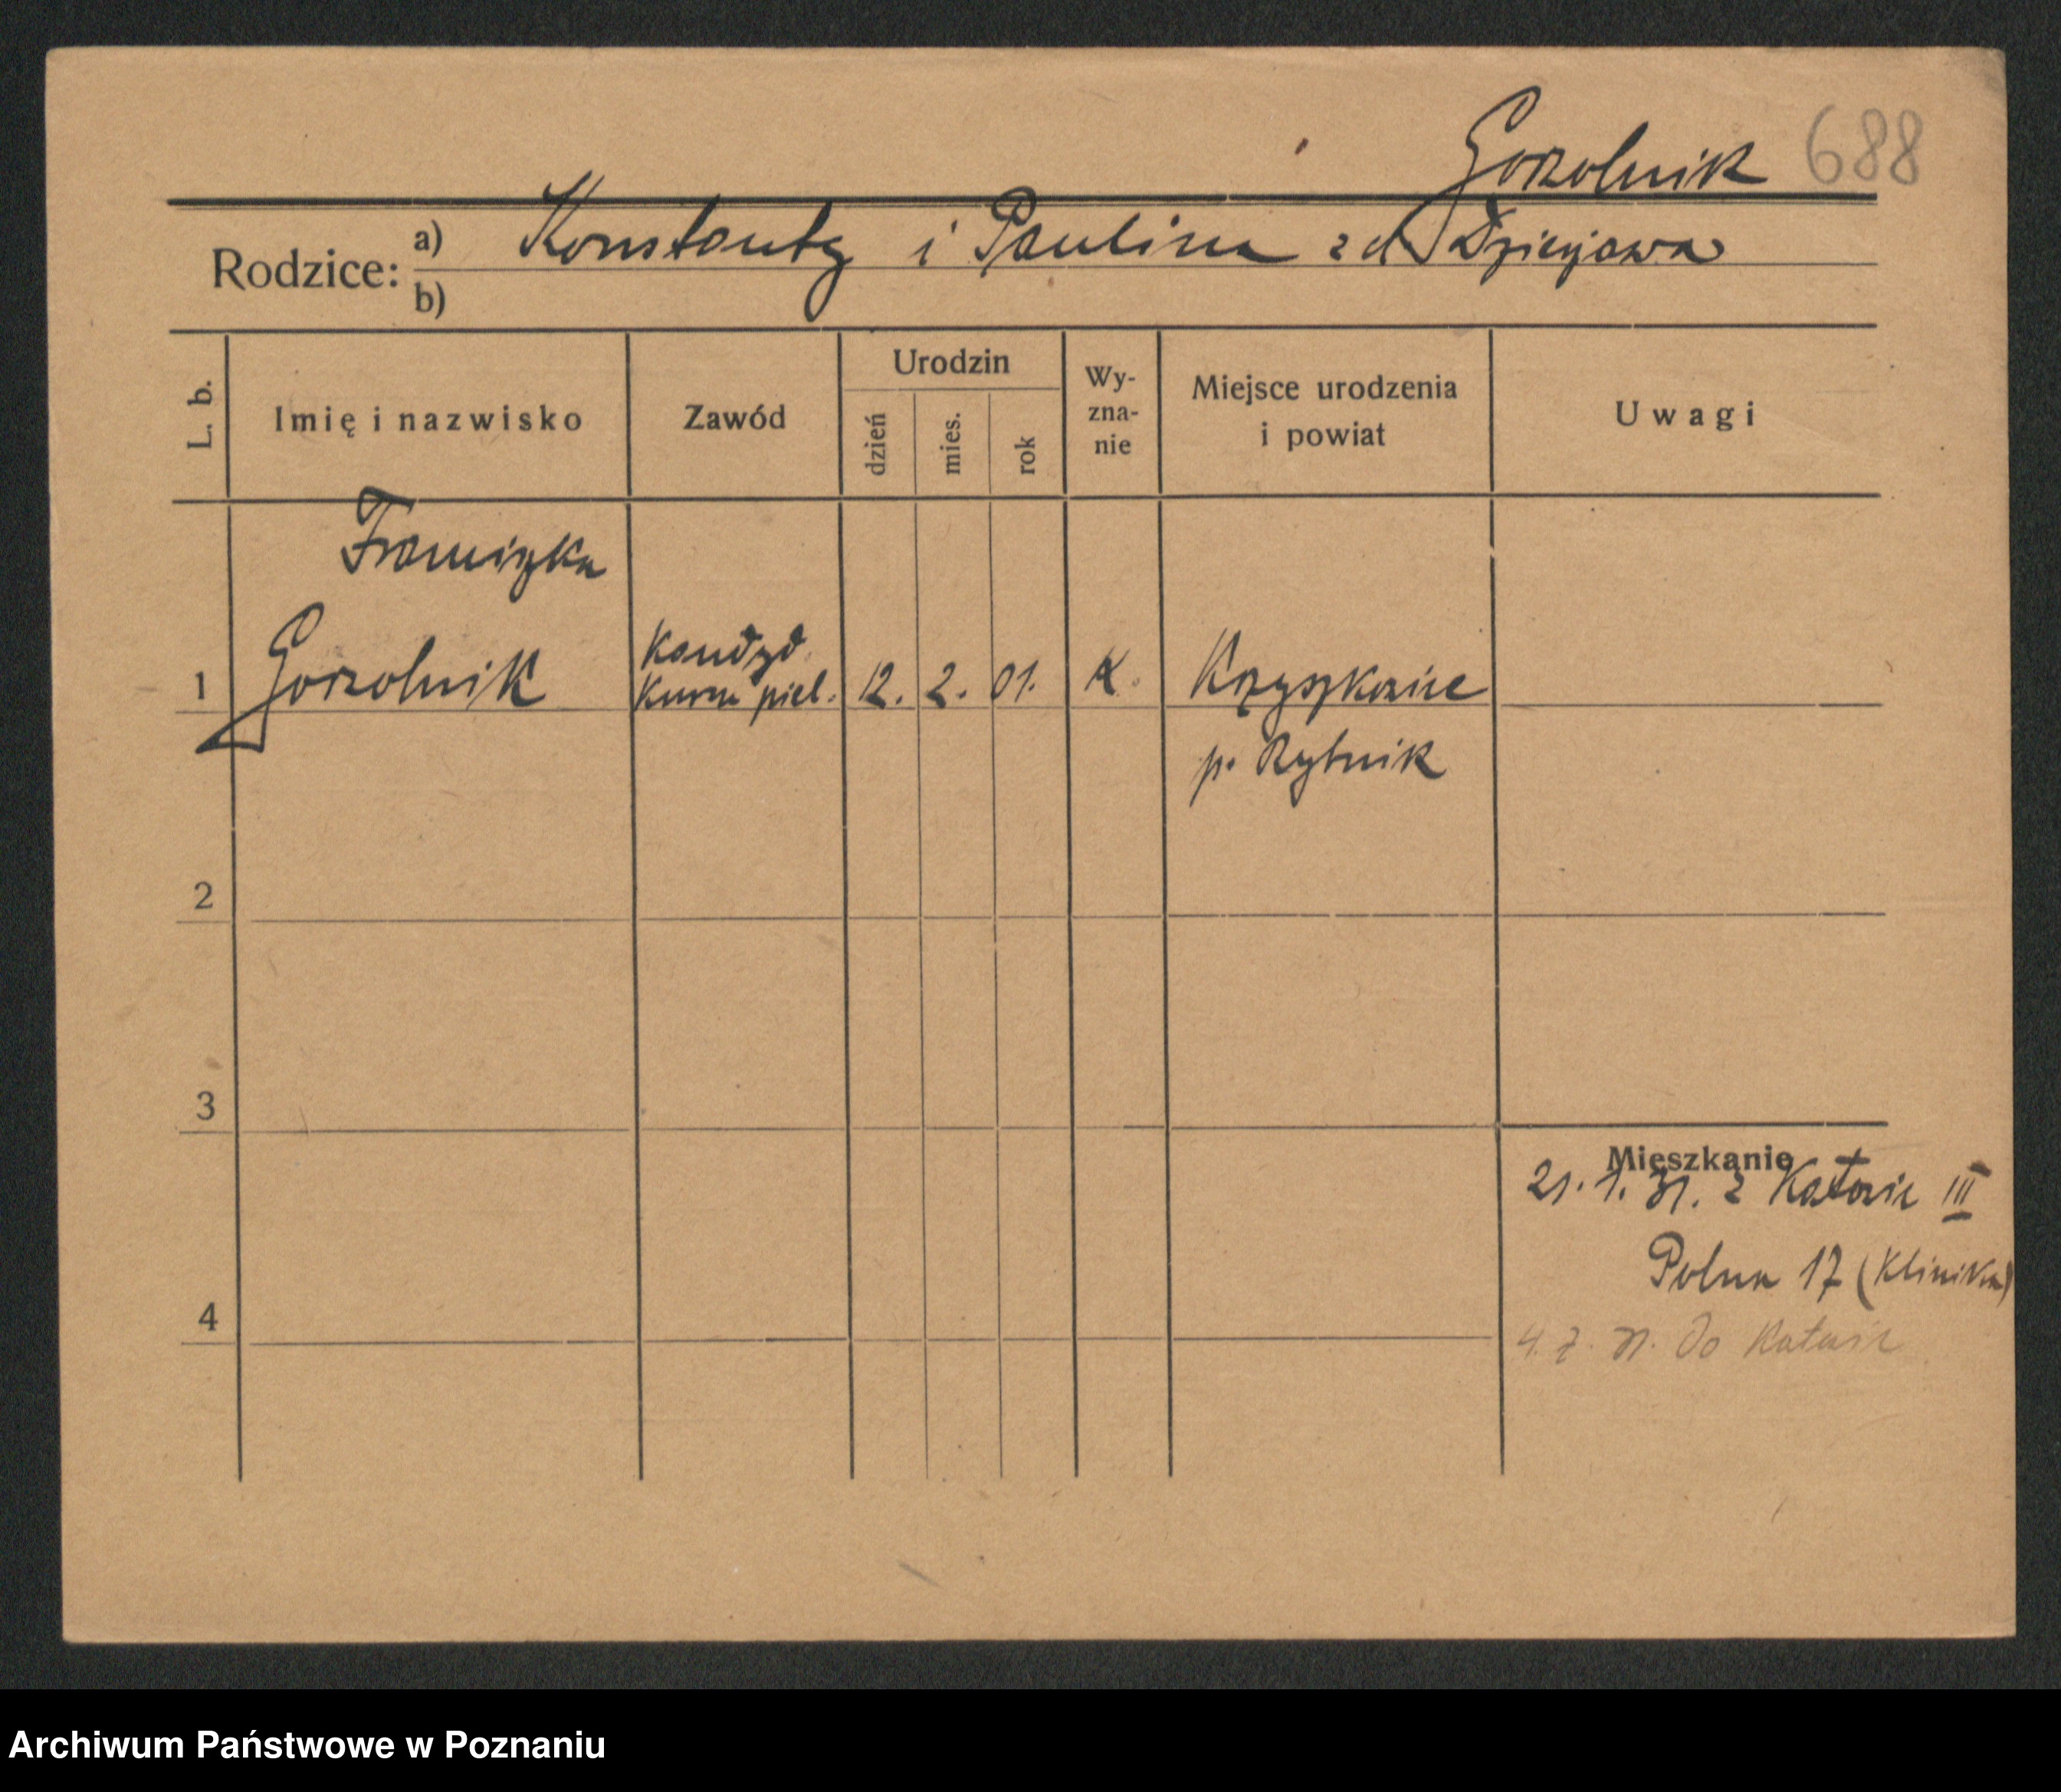 Gorzolnik 688
Rodzice: a) Konstanty i Paulina z d. Dziejawa
b)
L. b. Imię i nazwisko Zawód Urodzin dzień mies. rok Wy-zna-nie Miejsce urodzenia i powiat Uwagi
Franciszka
1 Gorzolnik Kandyd. kursu piel. 12. 2. 01. K. Krzyszkowice
p. Rybnik
2
3
Mieszkanie
21. 1. 31. z Katowic III
Polna 17 (Klinika)
4
4. 7. 31. do Katowic
Archiwum Państwowe w Poznaniu